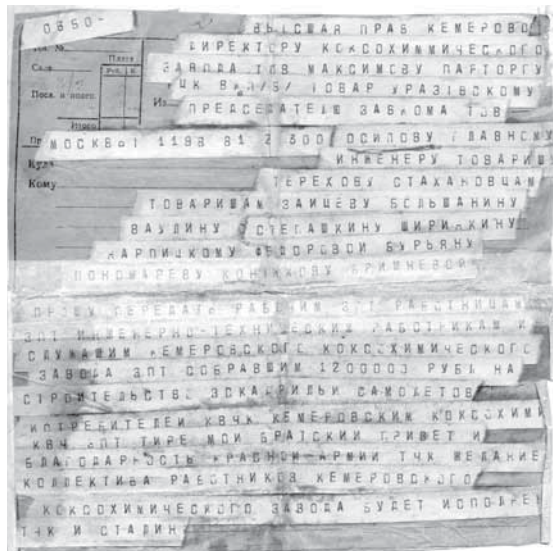 0350-
ВЫСШАЯ ПРАВ КЕМЕРОВО
ДИРЕКТОРУ КОКСОХИММИЧЕСКОГО
ЗАВОДА ТОВ МАКСИМОВУ ПАРТОРГУ
ЦК ВКП/Б/ ТОВАР УРАЗОВСКОМУ
ПРЕДСЕДАТЕЛЮ ЗАВКОМА ТОВ
МОСКВА 1198 81 2 300 ОСИПОВУ ГЛАВНОМУ
ИНЖЕНЕРУ ТОВАРИЩ
ТЕРЕХОВУ СТАХАНОВЦАМ
ТОВАРИЩАМ ЗАЙЦЕВУ БОЛЬШАНИНУ
ВАУЛИНУ СТЕГАШКИНУ ШИРИНКИНУ
КАРПИЦКОМУ ФЕДОРОВОЙ БУРЬЯНУ
ПОНОМАРЕВУ КОНЮХОВУ
ПРОШУ ПЕРЕДАТЬ РАБОЧИМ ЗПТ РАБОТНИЦАМ
ЗПТ ИНЖЕНЕРНО-ТЕХНИЧЕСКИМ РАБОТНИКАМ И
СЛУЖАЩИМ КЕМЕРОВСКОГО КОКСОХИМИЧЕСКОГО
ЗАВОДА ЗПТ СОБРАВШИМ 1200000 РУБЛ НА
СТРОИТЕЛЬСТВО ЭСКАДРИЛЬИ САМОЛЕТОВ
ИСТРЕБИТЕЛЕЙ КВЧК КЕМЕРОВСКИМ КОКСОХИМИ
КВЧ ЗПТ ТИРЕ МОЙ БРАТСКИЙ ПРИВЕТ И
БЛАГОДАРНОСТЬ КРАСНОЙ АРМИИ ТЧК ЖЕЛАНИЕ
КОЛЛЕКТИВА РАБОТНИКОВ КЕМЕРОВСКОГО
КОКСОХИММИЧЕСКОГО ЗАВОДА БУДЕТ ИСПОЛНЕ
ТЧК И СТАЛИН
Плата
Руб. К.
Итого
Куда
Кому